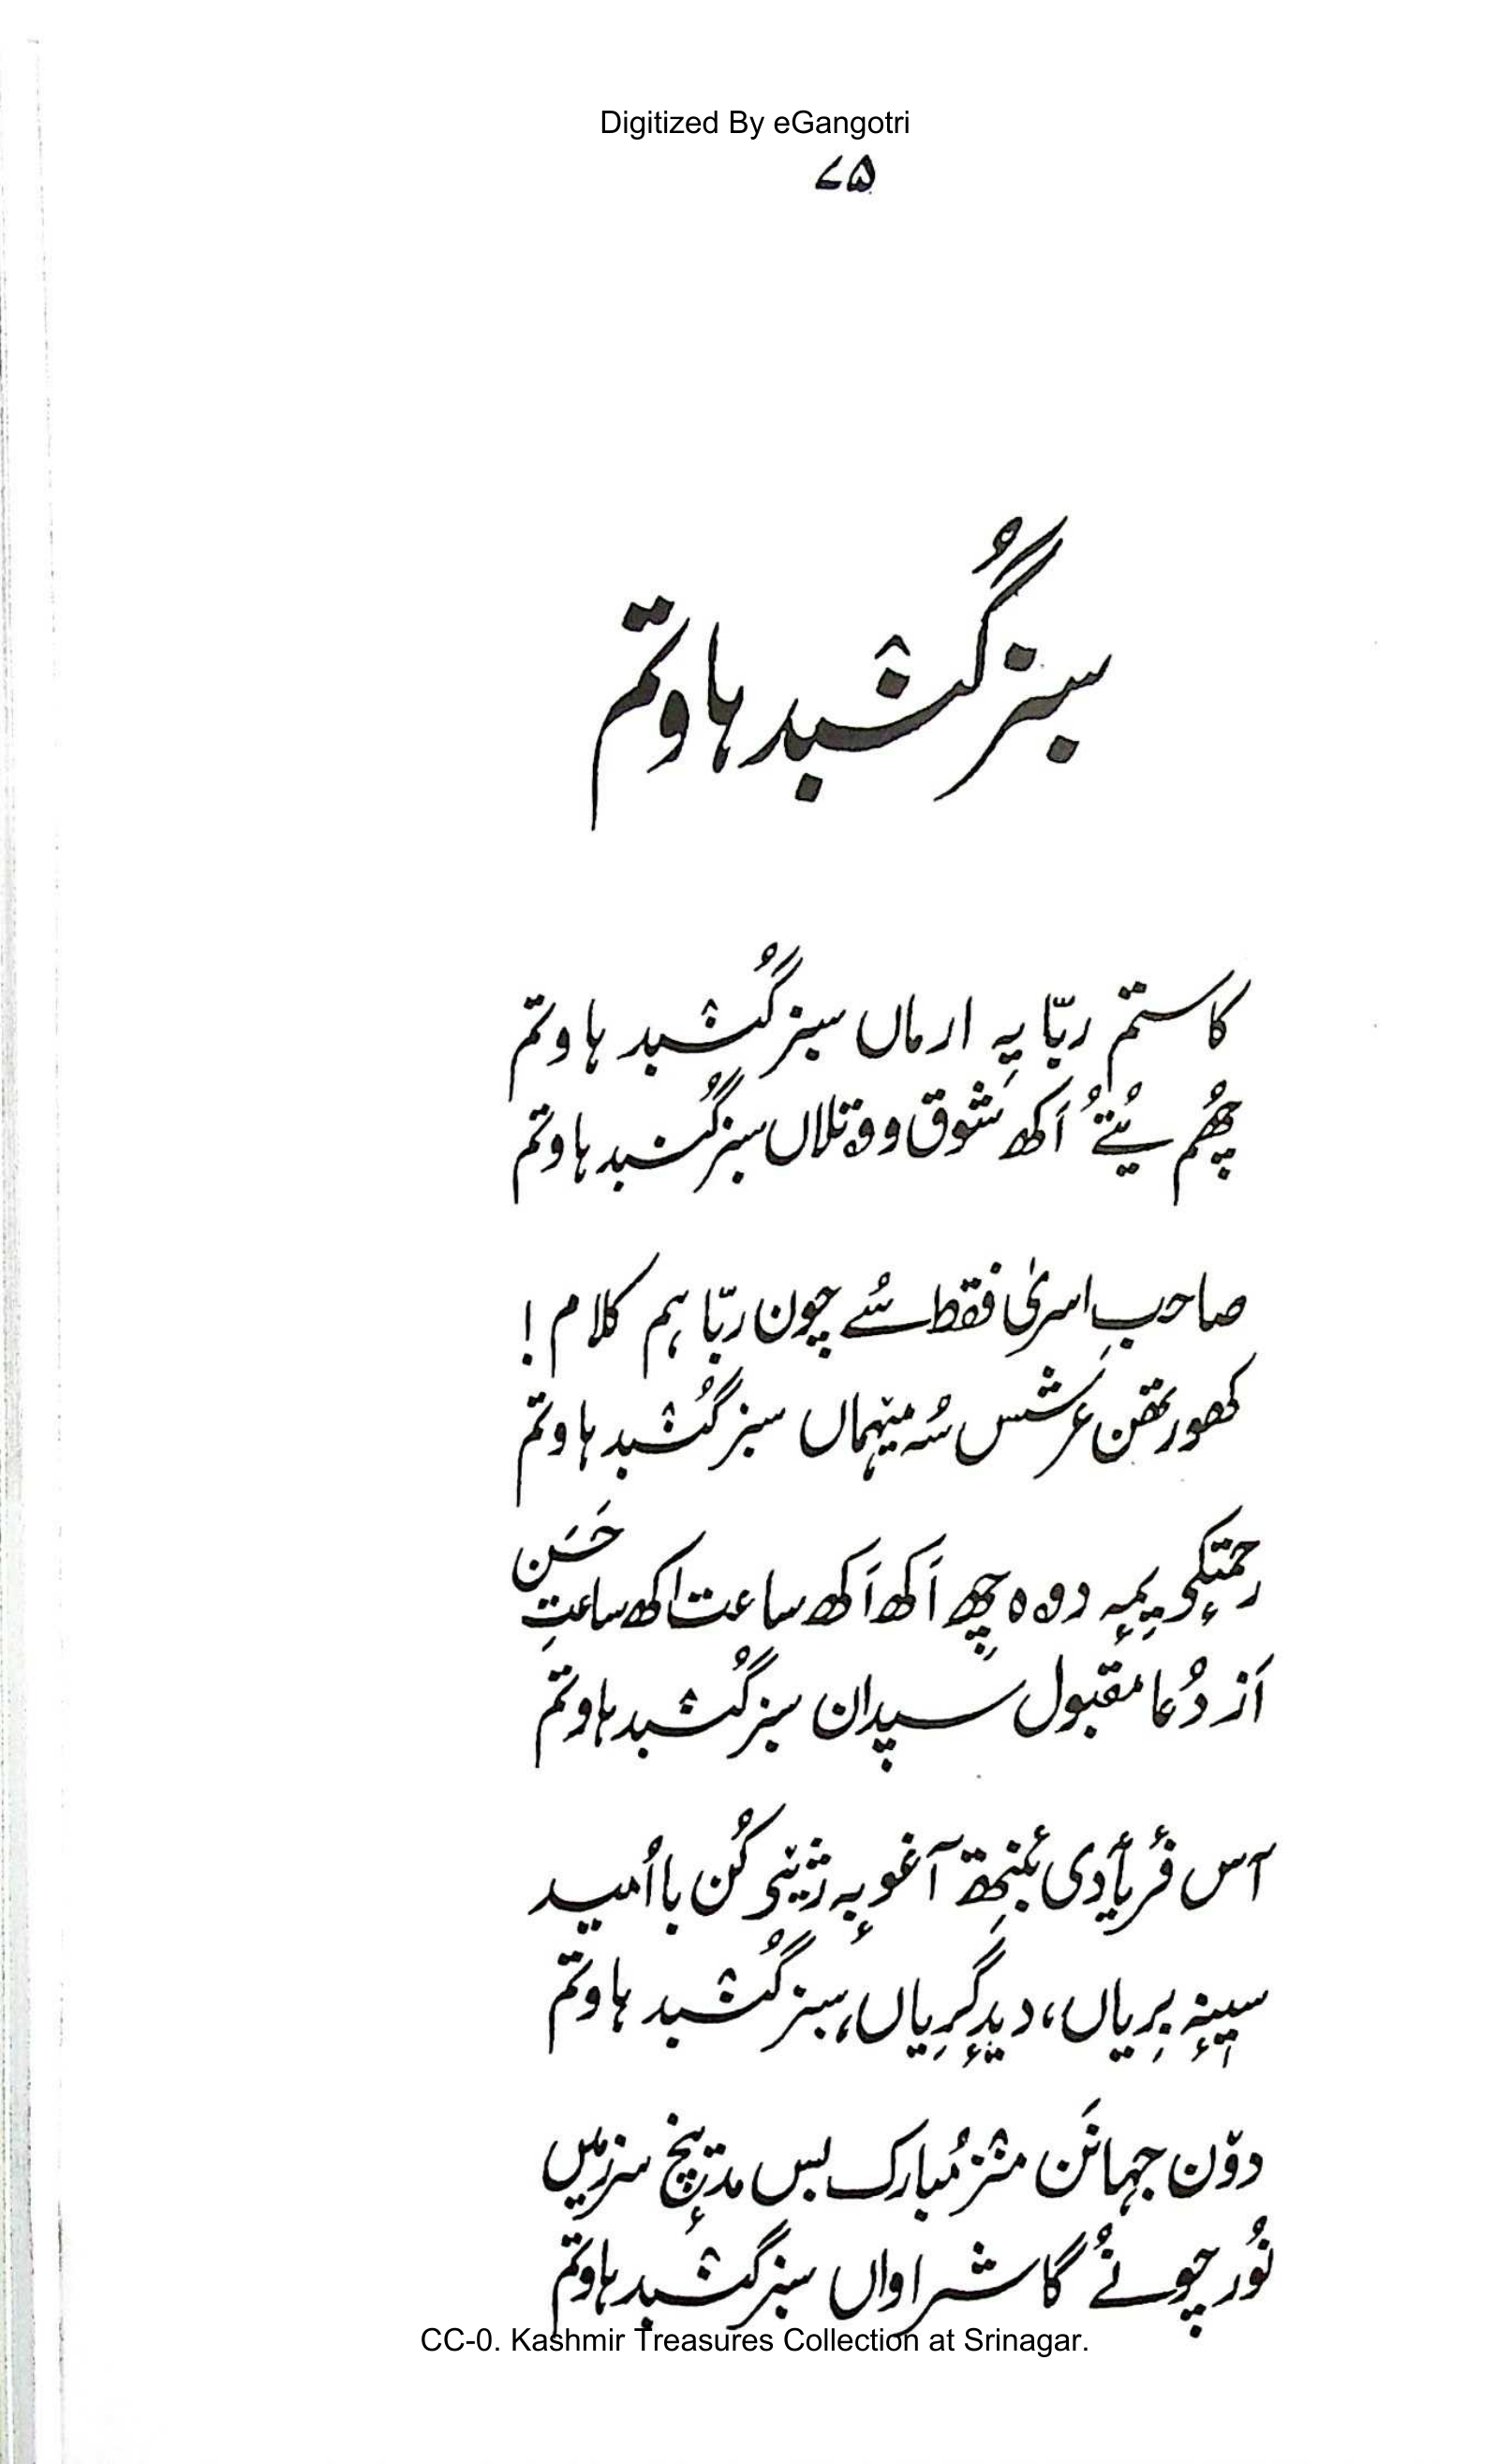 Digitized By eGangotri
۷۵
سبز گُنٛبد ہاوتم
کاستم ربّا یہِ ارماں سبز گُنٛبد ہاوتم
چھُم یُتُے اَکھ شوق ووتلاں سبز گُنبد ہاوتم
صاحبِ اسریٰ فقط سُے چون ربّا ہم کلام!
کھور تھٔن عرشس سُہ میٚہماں سبز گُنٛبد ہاوتم
رحمتٕکی یِمہٕ دوہ چھِ اَکھ اَکھ ساعت اکھ ساعتِ حَسَن
اَز دُعا مقبول سپدان سبز گُنٛبد ہاوتم
آس فٔریأدی بٔنِتھ آغوبہٕ ژٔنی کُن با اُمید
سیٖنہٕ بِریاں، دیدٕ گِریاں، سبز گُنٛبد ہاوتم
دوٚن جہانَن منٛز مُبارک بس مدیٖنٕچ سرزمیں
نُور چونُے گاشراواں سبز گنٛبد ہاوتم
CC-0. Kashmir Treasures Collection at Srinagar.